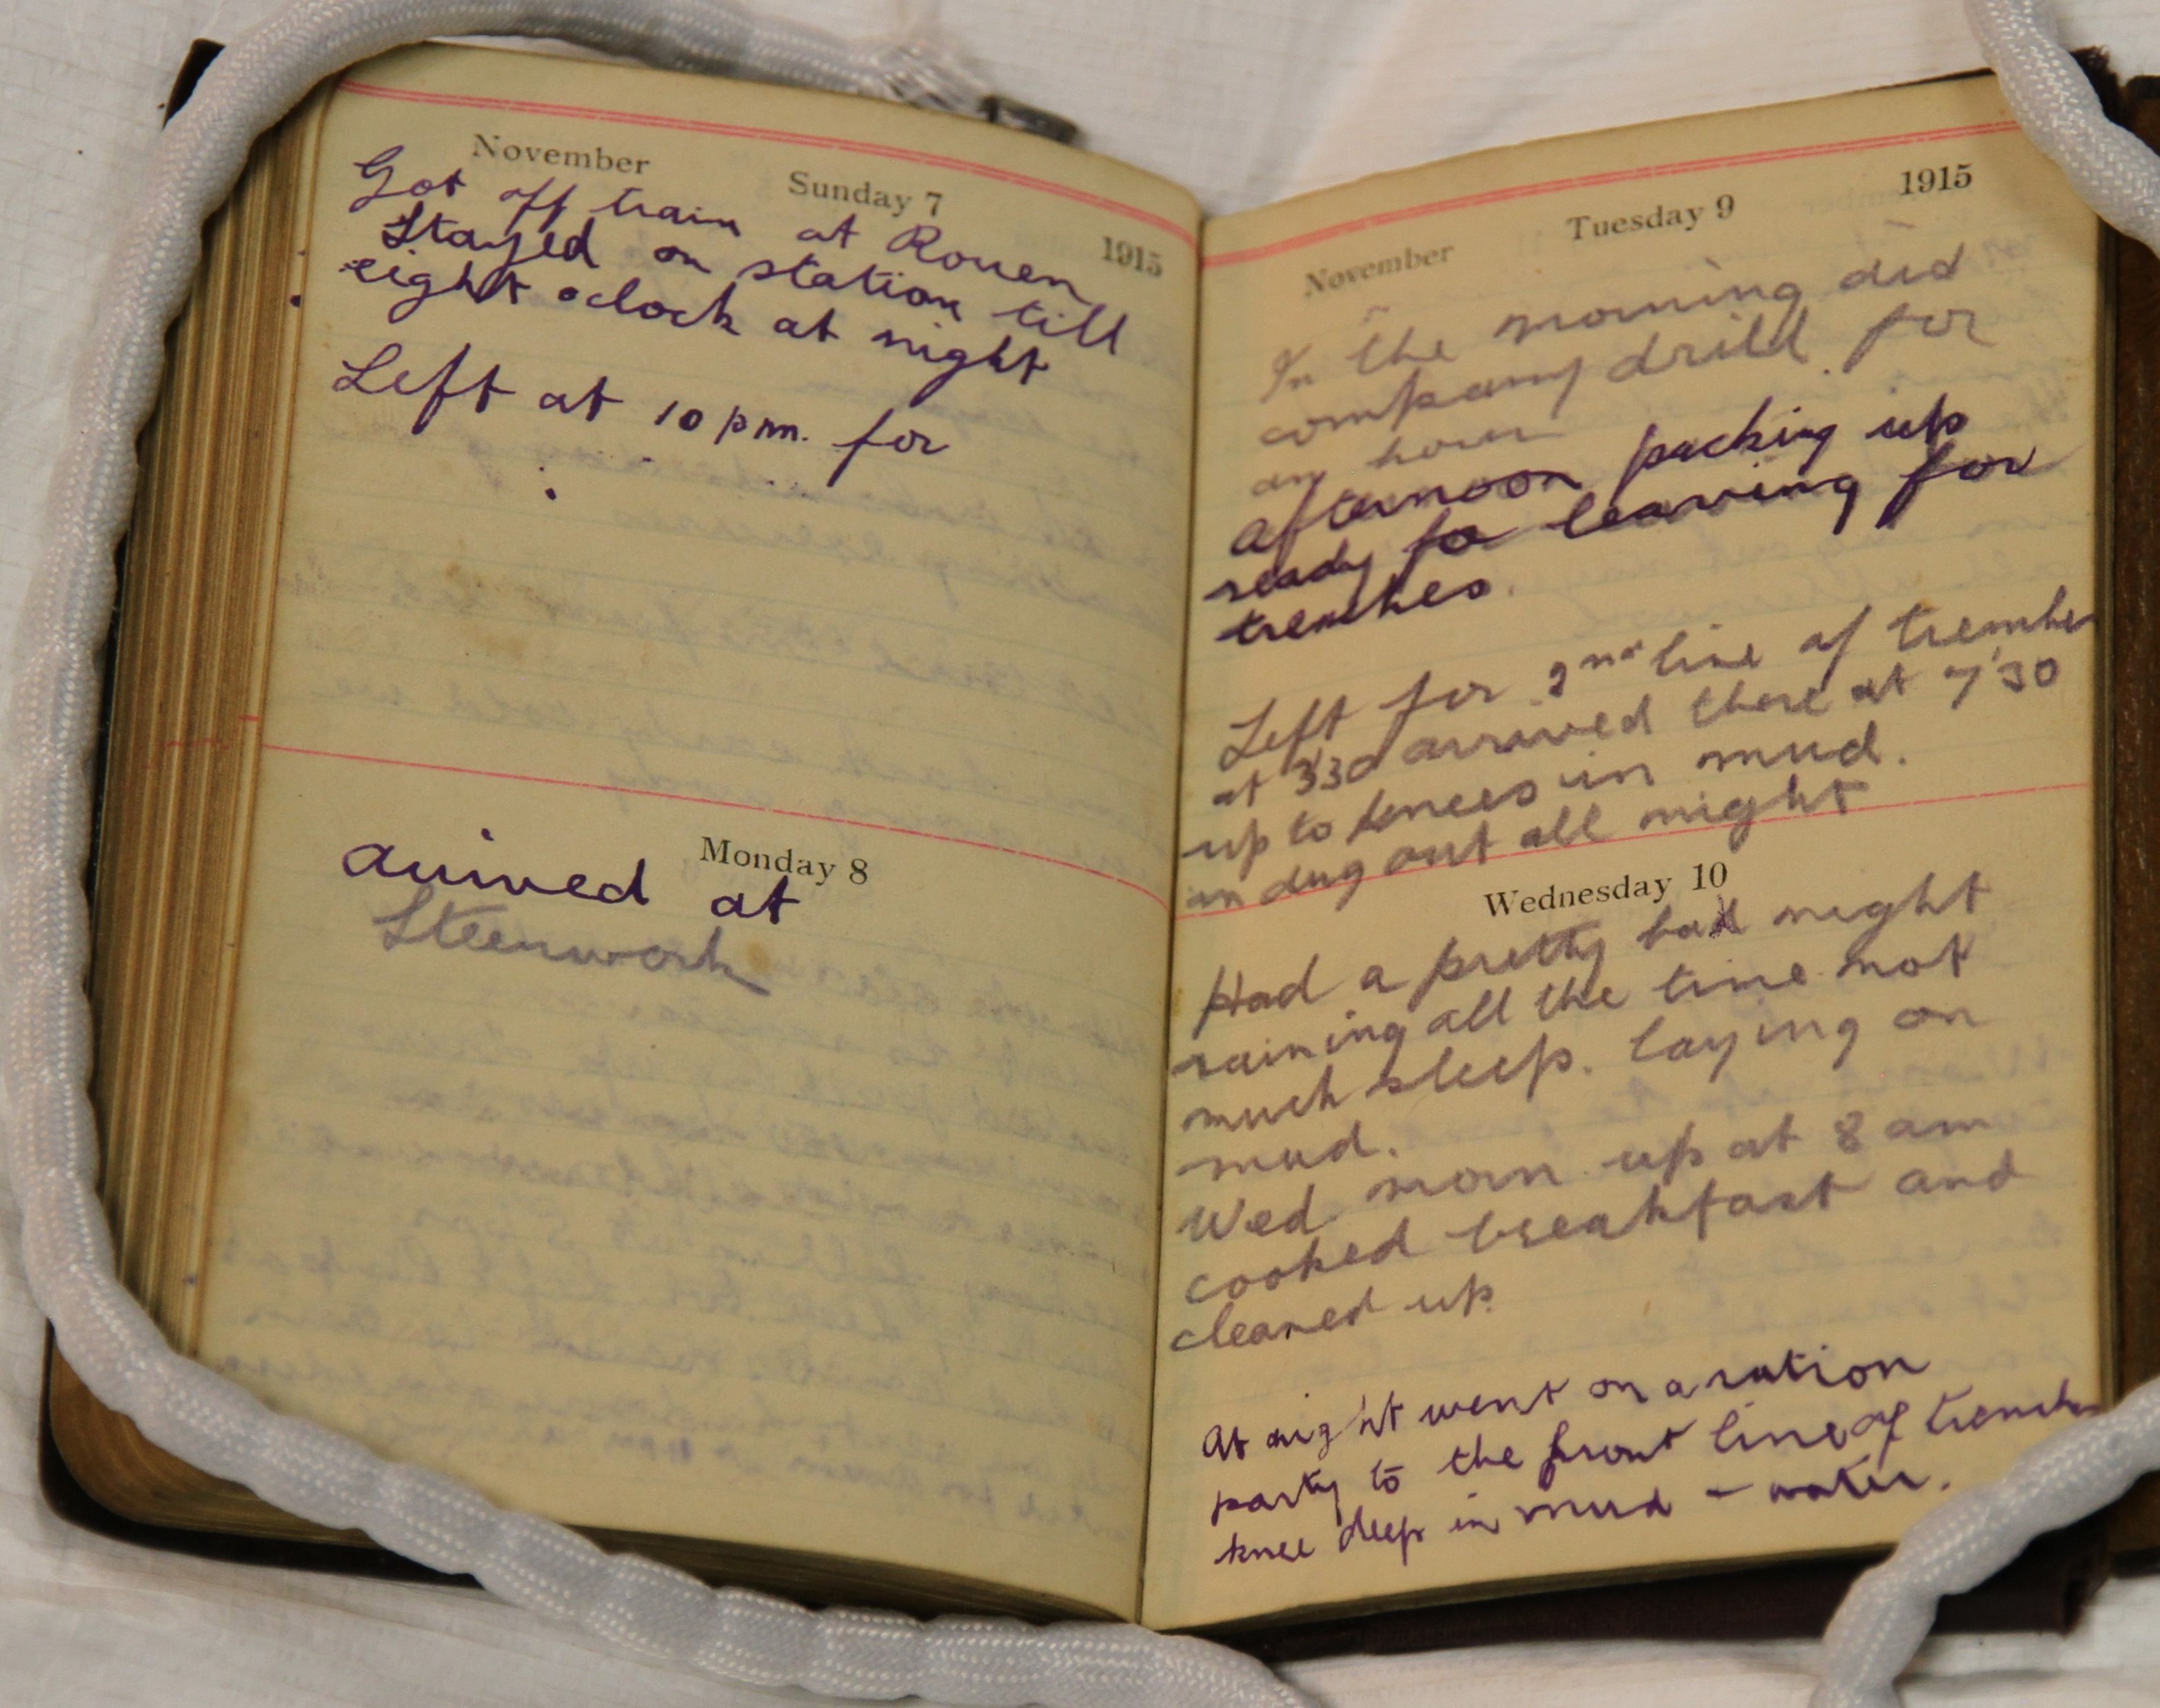 November Sunday 7 1915
Got off train at Rouen
Stayed on station till
eight oclock at night
Left at 10 pm. for
Monday 8
arrived at
Steenwork
November Tuesday 9 1915
In the morning did
company drill for
an hour
afternoon packing up
ready for leaving for
trenches.
Left for 2nd line of trenches
at 3.30 arrived there at 7.30
up to knees in mud.
in dug out all night
Wednesday 10
Had a pretty bad night
raining all the time not
much sleep. laying on
mud.
Wed morn up at 8 am
cooked breakfast and
cleaned up.
At night went on a ration
party to the front line of trenches
knee deep in mud + water.